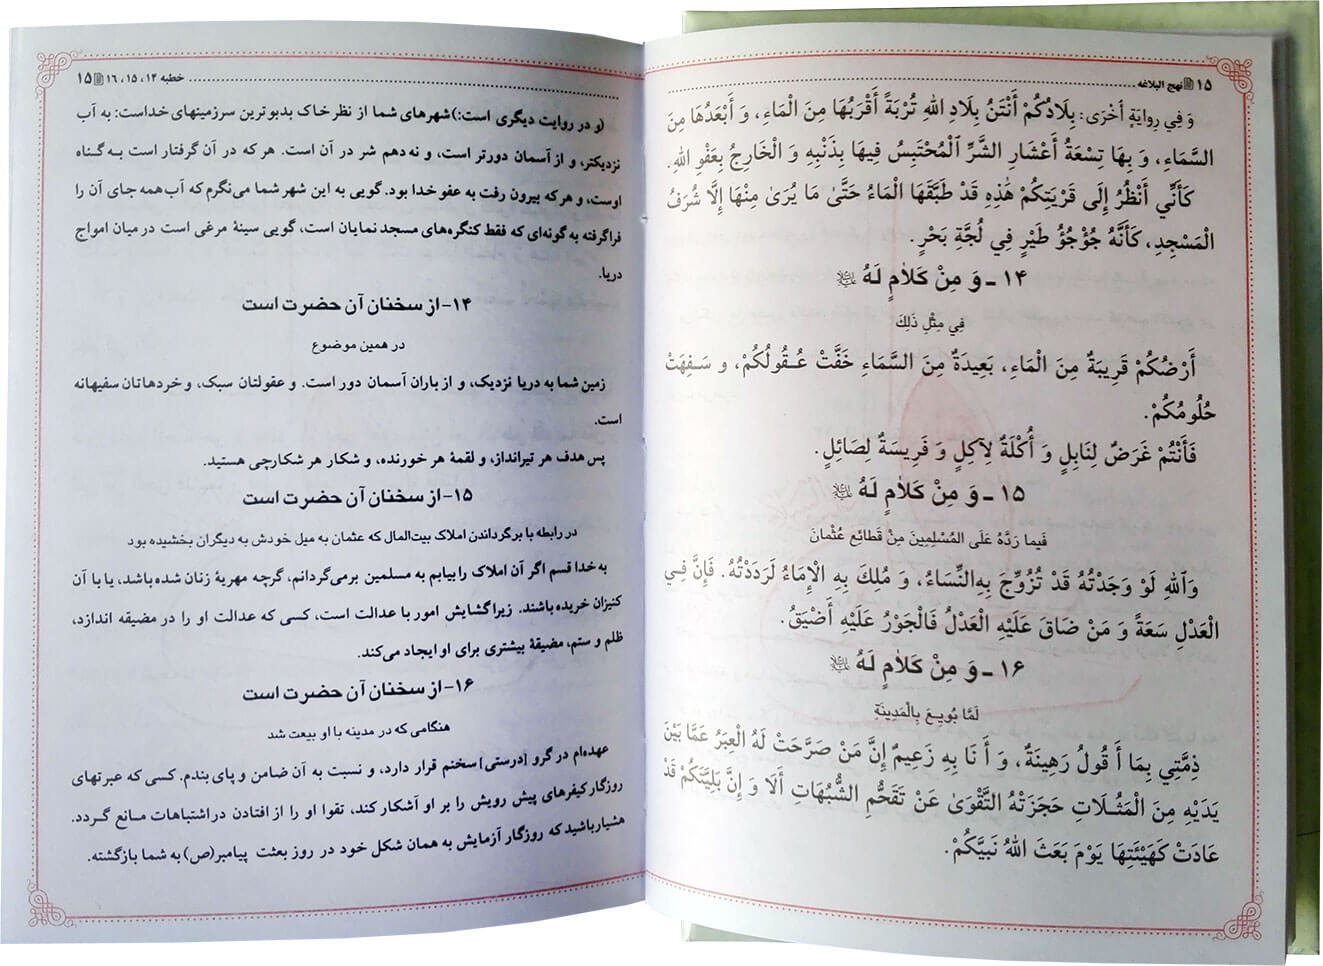 ۱۵ نهج البلاغه
وَ فِي رِوايَةٍ أُخْرَى: بِلَادُكُمْ أَنْتَنُ بِلَادِ اللهِ تُرْبَةً أَقْرَبُهَا مِنَ الْمَاءِ، وَ أَبْعَدُهَا مِنَ
السَّمَاءِ، وَ بِهَا تِسْعَةُ أَعْشَارِ الشَّرِّ اَلْمُحْتَبِسُ فِيهَا بِذَنْبِهِ وَ الْخَارِجُ بِعَفْوِ اللهِ.
كَأَنِّي أَنْظُرُ إِلَى قَرْيَتِكُمْ هٰذِهِ قَدْ طَبَّقَهَا الْمَاءُ حَتَّىٰ مَا يُرَىٰ مِنْهَا إِلَّا شُرَفُ
الْمَسْجِدِ، كَأَنَّهُ جُؤْجُؤُ طَيْرٍ فِي لُجَّةِ بَحْرٍ.
۱۴ ـ وَ مِنْ كَلاٰمٍ لَهُ
فِي مِثْلِ ذَلِكَ
أَرْضُكُمْ قَرِيبَةٌ مِنَ الْمَاءِ، بَعِيدَةٌ مِنَ السَّمَاءِ خَفَّتْ عُـقُولُكُمْ، و سَـفِهَتْ
حُلُومُكُمْ.
فَأَنْتُمْ غَرَضٌ لِنَابِلٍ وَ أُكْلَةٌ لِآكِلٍ وَ فَرِيسَةٌ لِصَائِلٍ.
۱۵ ـ وَ مِنْ كَلاٰمٍ لَهُ
فَيما رَدَّهُ عَلَى المُسْلِمِينَ مِنْ قَطائِعِ عُثْمانَ
وَاللهِ لَوْ وَجَدْتُهُ قَدْ تُزُوِّجَ بِهِ‌النِّسَاءُ، وَ مُلِكَ بِهِ الْإِمَاءُ لَرَدَدْتُهُ. فَإِنَّ فِـي
الْعَدْلِ سَعَةً وَ مَنْ ضَاقَ عَلَيْهِ الْعَدْلُ فَالْجَوْرُ عَلَيْهِ أَضْيَقُ.
۱۶ ـ وَ مِنْ كَلاٰمٍ لَهُ
لَمَّا بُويِـعَ بِالْمَدِينَةِ
ذِمَّتِي بِمَا أَ قُولُ رَهِينَةٌ، وَ أَ نَا بِهِ زَعِيمٌ إِنَّ مَنْ صَرَّحَتْ لَهُ الْعِبَرُ عَمَّا بَيْنَ
يَدَيْهِ مِنَ الْمَثُـلَاتِ حَجَزَتْهُ التَّقْوَىٰ عَنْ تَقَحُّمِ الشُّبُهَاتِ أَلَا وَ إِنَّ بَلِيَّتَكُمْ قَدْ
عَادَتْ كَهَيْئَتِهَا يَوْمَ بَعَثَ اللهُ نَبِيَّكُمْ.
خطبه ۱۴، ۱۵، ۱۶ ۱۵
(و در روایت دیگری است:) شهرهای شما از نظر خاک بدبوترین سرزمینهای خداست: به آب
نزدیکتر، و از آسمان دورتر است، و نه دهم شر در آن است. هر که در آن گرفتار است بـه گـناه
اوست، و هر که بیرون رفت به عفو خدا بود. گویی به این شهر شما می‌نگرم که آب همه جای آن را
فراگرفته به گونه‌ای که فقط کنگره‌های مسجد نمایان است، گویی سینهٔ مرغی است در میان امواج
دریا.
۱۴- از سخنان آن حضرت است
در همین موضوع
زمین شما به دریا نزدیک، و از باران آسمان دور است. و عقولتان سبک، و خردهاتان سفیهانه
است.
پس هدف هر تیرانداز، و لقمهٔ هر خورنده، و شکار هر شکارچی هستید.
۱۵- از سخنان آن حضرت است
در رابطه با برگرداندن املاک بیت‌المال که عثمان به میل خودش به دیگران بخشیده بود
به خدا قسم اگر آن املاک را بیابم به مسلمین برمی‌گردانم، گرچه مهریهٔ زنان شده باشد، یا با آن
کنیزان خریده باشند. زیرا گشایش امور با عدالت است، کسی که عدالت او را در مضیقه اندازد،
ظلم و ستم، مضیقهٔ بیشتری برای او ایجاد می‌کند.
۱۶- از سخنان آن حضرت است
هنگامی که در مدینه با او بیعت شد
عهده‌ام در گرو [درستی] سخنم قرار دارد، و نسبت به آن ضامن و پای بندم. کسی که عبرتهای
روزگار کیفرهای پیش رویش را بر او آشکار کند، تقوا او را از افتادن در اشتباهات مـانع گـردد.
هشیار باشید که روزگار آزمایش به همان شکل خود در روز بعثت پیامبر(ص) به شما بازگشته.